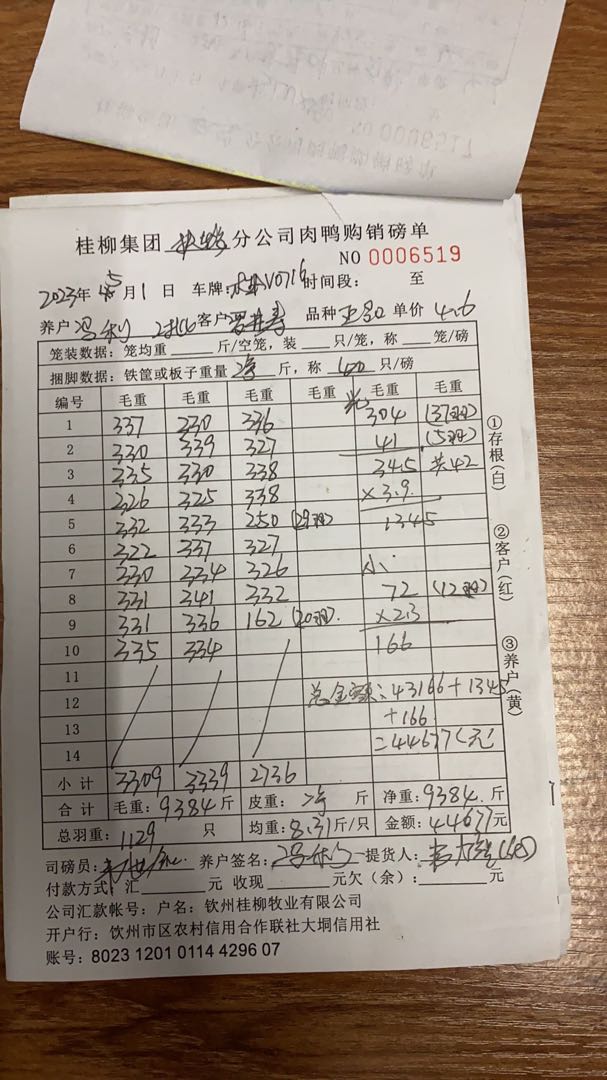 桂柳集团 分公司肉鸭购销磅单
NO 0006519
2023年 5月1日 车牌: V0716 时间段: 至
养户 冯利 2批 客户 品种 单价 4.6
笼装数据: 笼均重 斤/空笼, 装 只/笼, 称 笼/磅
捆脚数据: 铁筐或板子重量 斤, 称 只/磅
编号 毛重 毛重 毛重 毛重 毛重 毛重
1 337 330 336 304 (37羽)
2 330 339 327 41 (5羽)
3 335 330 338 345 共42
4 326 325 338 ×3.9
5 332 333 250 (29羽) 1345
6 322 337 327
7 330 334 326 小
8 331 341 332 72 (12羽)
9 331 336 162 (20羽) ×2.3
10 335 334 166
11
12 总金额:43166+1345
13 +166
14 =44677(元)
小计 3309 3339 2736
合计 毛重:9384斤 皮重: 斤 净重:9384斤
总羽重: 1129 只 均重:8.31斤/只 金额:44677元
司磅员: 养户签名: 冯利 提货人:
付款方式: 汇 元 收现 元欠(余): 元
公司汇款帐号: 户名: 钦州桂柳牧业有限公司
开户行: 饮州市区农村信用合作联社大垌信用社
账号: 8023 1201 0114 4296 07
①存根(白)
②客户(红)
③养户(黄)